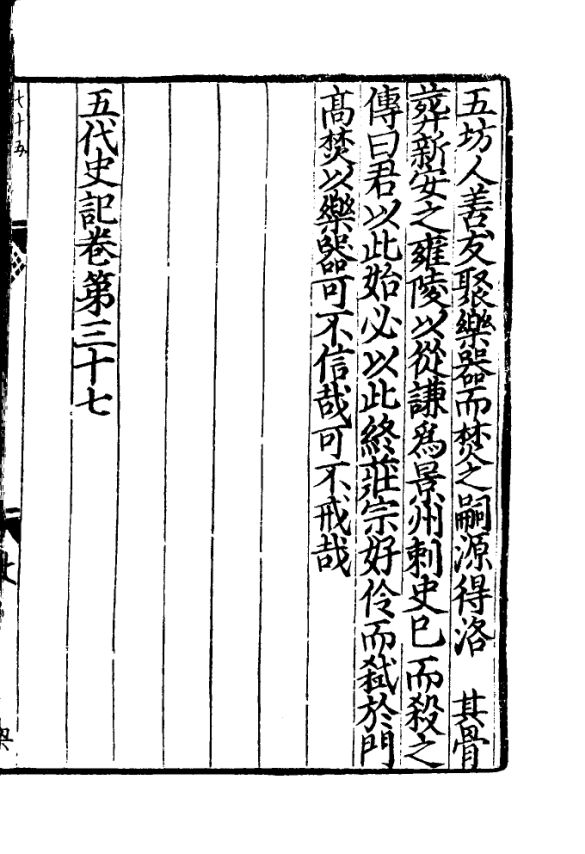 五坊人善友聚樂器而焚之嗣源得洛　其骨
葬新安之雍陵以從謙爲景州刺史已而殺之
傳曰君以此始必以此終莊宗好伶而弑於門
高焚以樂器可不信哉可不戒哉
五代史記卷第三十七
七十五